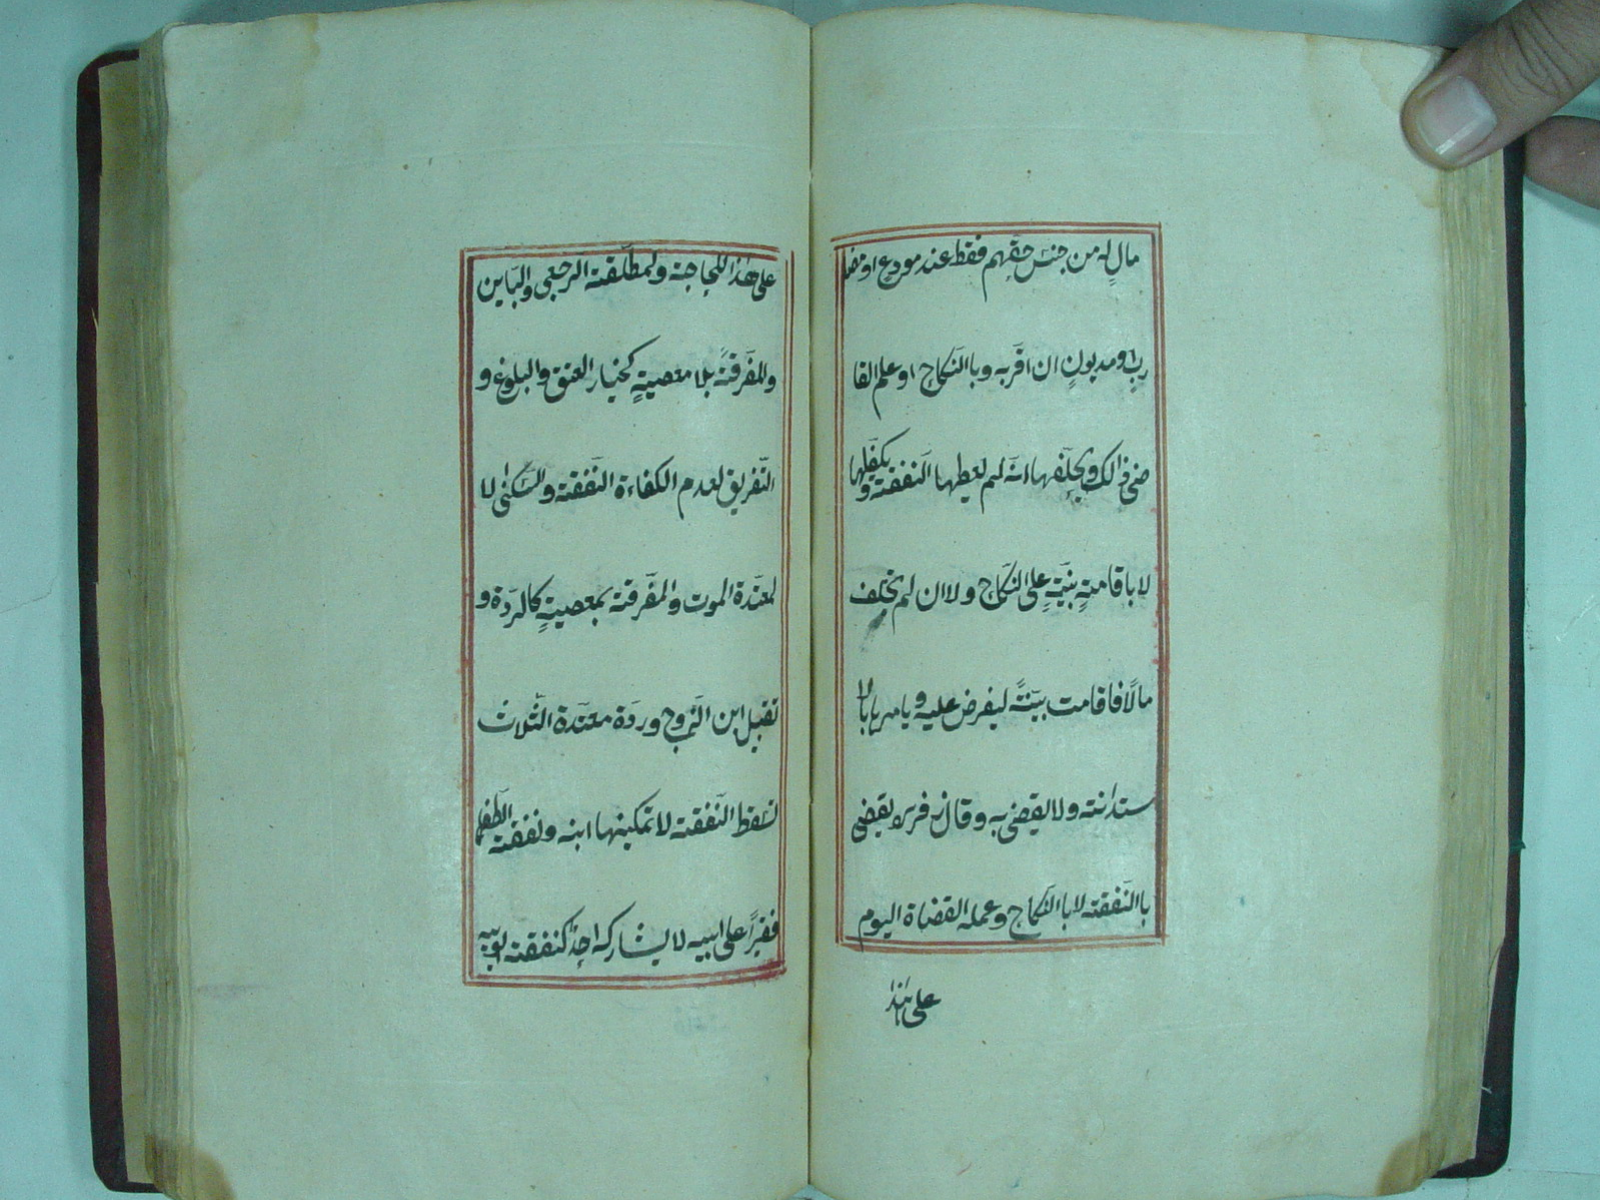 مالٍ له من جنس حقّهم فقط عند مودع او مضا
ربٍ او مديونٍ ان اقرّبه وبا النّكاح او علم القا
ضى ذالك ويحلّفها انّه لم يعطها النّفقته ويكفّلها
لا باقامتهٍ بيّنتهٍ على النكاح ولا ان لم يخلف
مالًا فاقامت بيّنتهً ليفرض عليه ويامرها بالا
ستدانته ولا يقضى به وقال زفر يقضى
باالنّفقته لا باالنّكاح وعمله القضاة اليوم
على هذا
على هٰذا اللحاجته ولمطلّقته الرّجعى والبّاين
والمفرّقتهً بلا معصيتهٍ كخيار العتق والبلوغ و
التّفريق لعدم الكفاءة النّفقته والسّكنىٰ لا
لمعتدّة الموت والمفرّقته بمعصيتهٍ كالردّة و
تقبيل ابن الزّوج وردّة معتدّة الثّلاث
تسقط النّفقته لا تمكينها ابنه ونفقته الطّفل
فقيراً على ابيه لا يشاركه احدٌ كنفقته ابويه